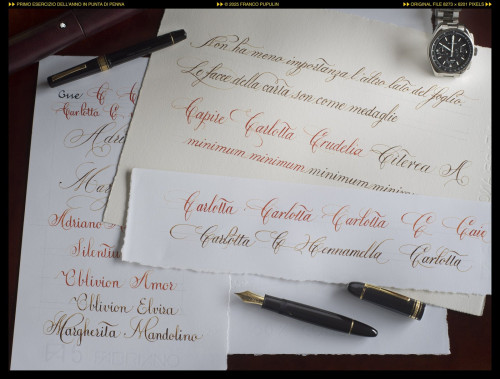 PRIMO ESERCIZIO DELL'ANNO IN PUNTA DI PENNA
© 2023 FRANCO PUPULIN
ORIGINAL FILE 8273 x 6201 PIXELS
Non ha meno importanza l'altro lato del foglio.
Le facce della carta son come medaglie
Capire Carlotta Crudelia Citerea A
minimum minimum minimum minimum
Carlotta C
Adriano
Silentiu
Oblivion Amor
Oblivion Elvira
Margherita Mandolino
Carlotta Carlotta Carlotta C Caio
Carlotta C Cennamella Carlotta